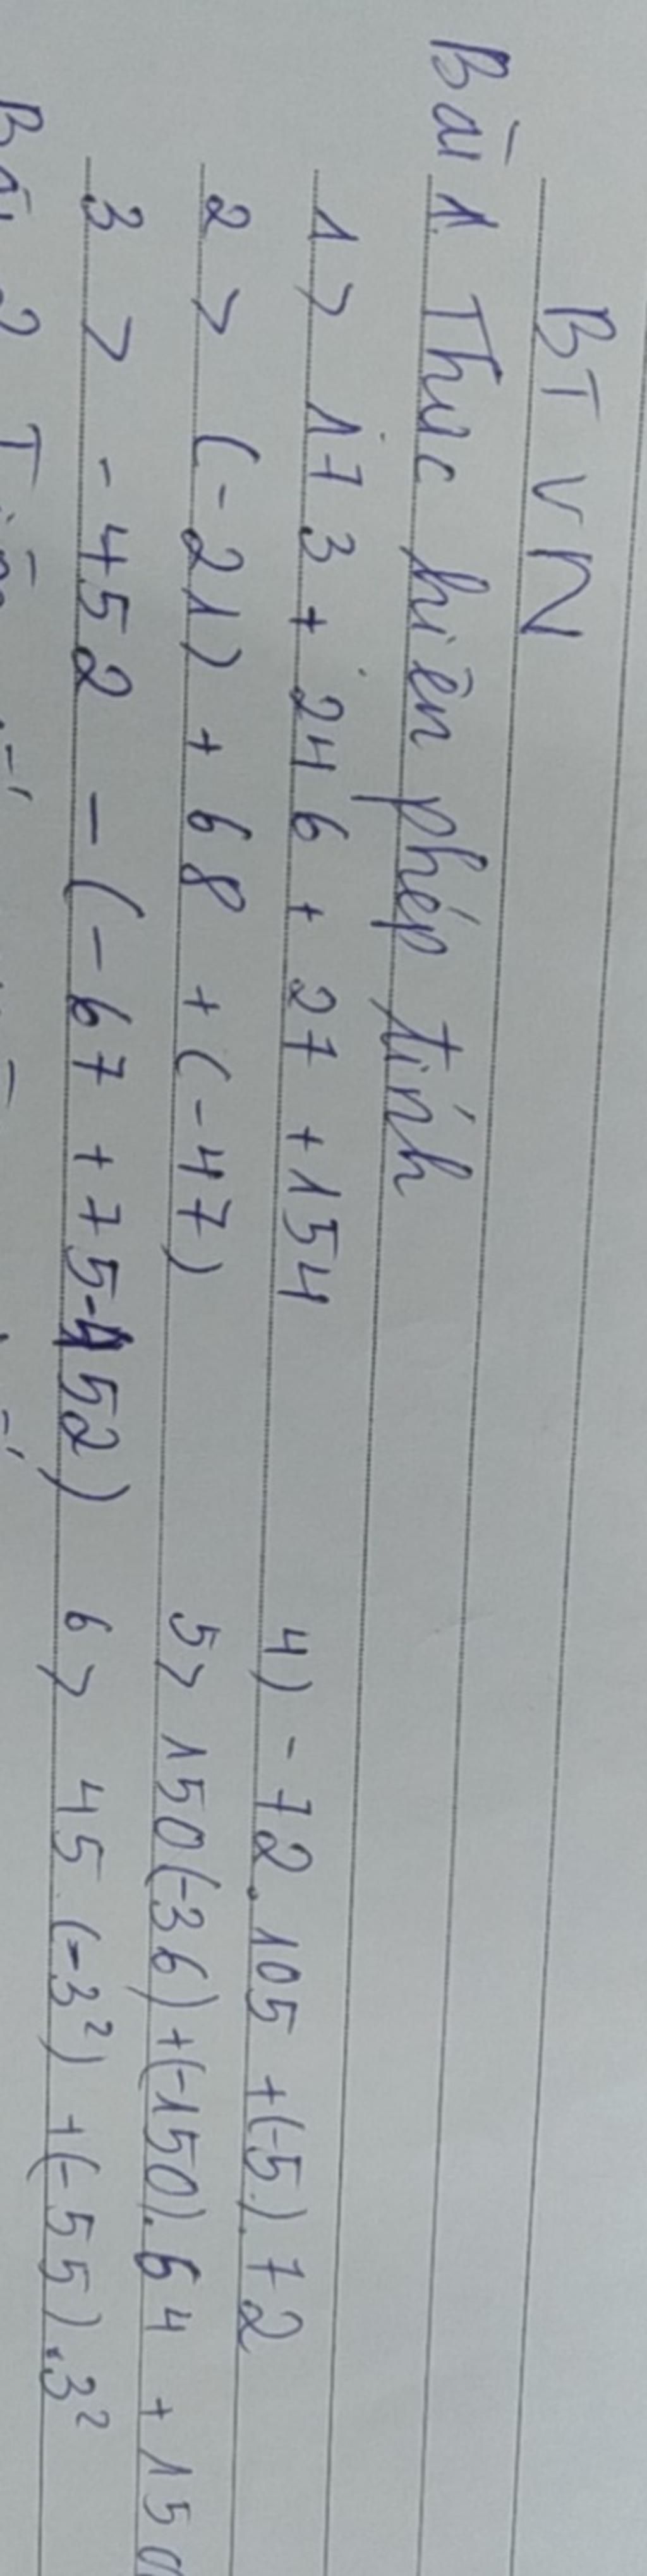 BTVN
Bài 1. Thực hiện phép tính
1> 173 + 246 + 27 + 154 4) -72.105 +(-5).72
2> (-21) + 68 + (-47) 5> 150(-36)+(-150).64 + 150
3> -452 - (-67 + 75-452) 6> 45.(-3²) +(-55).3²
Bài 2. T